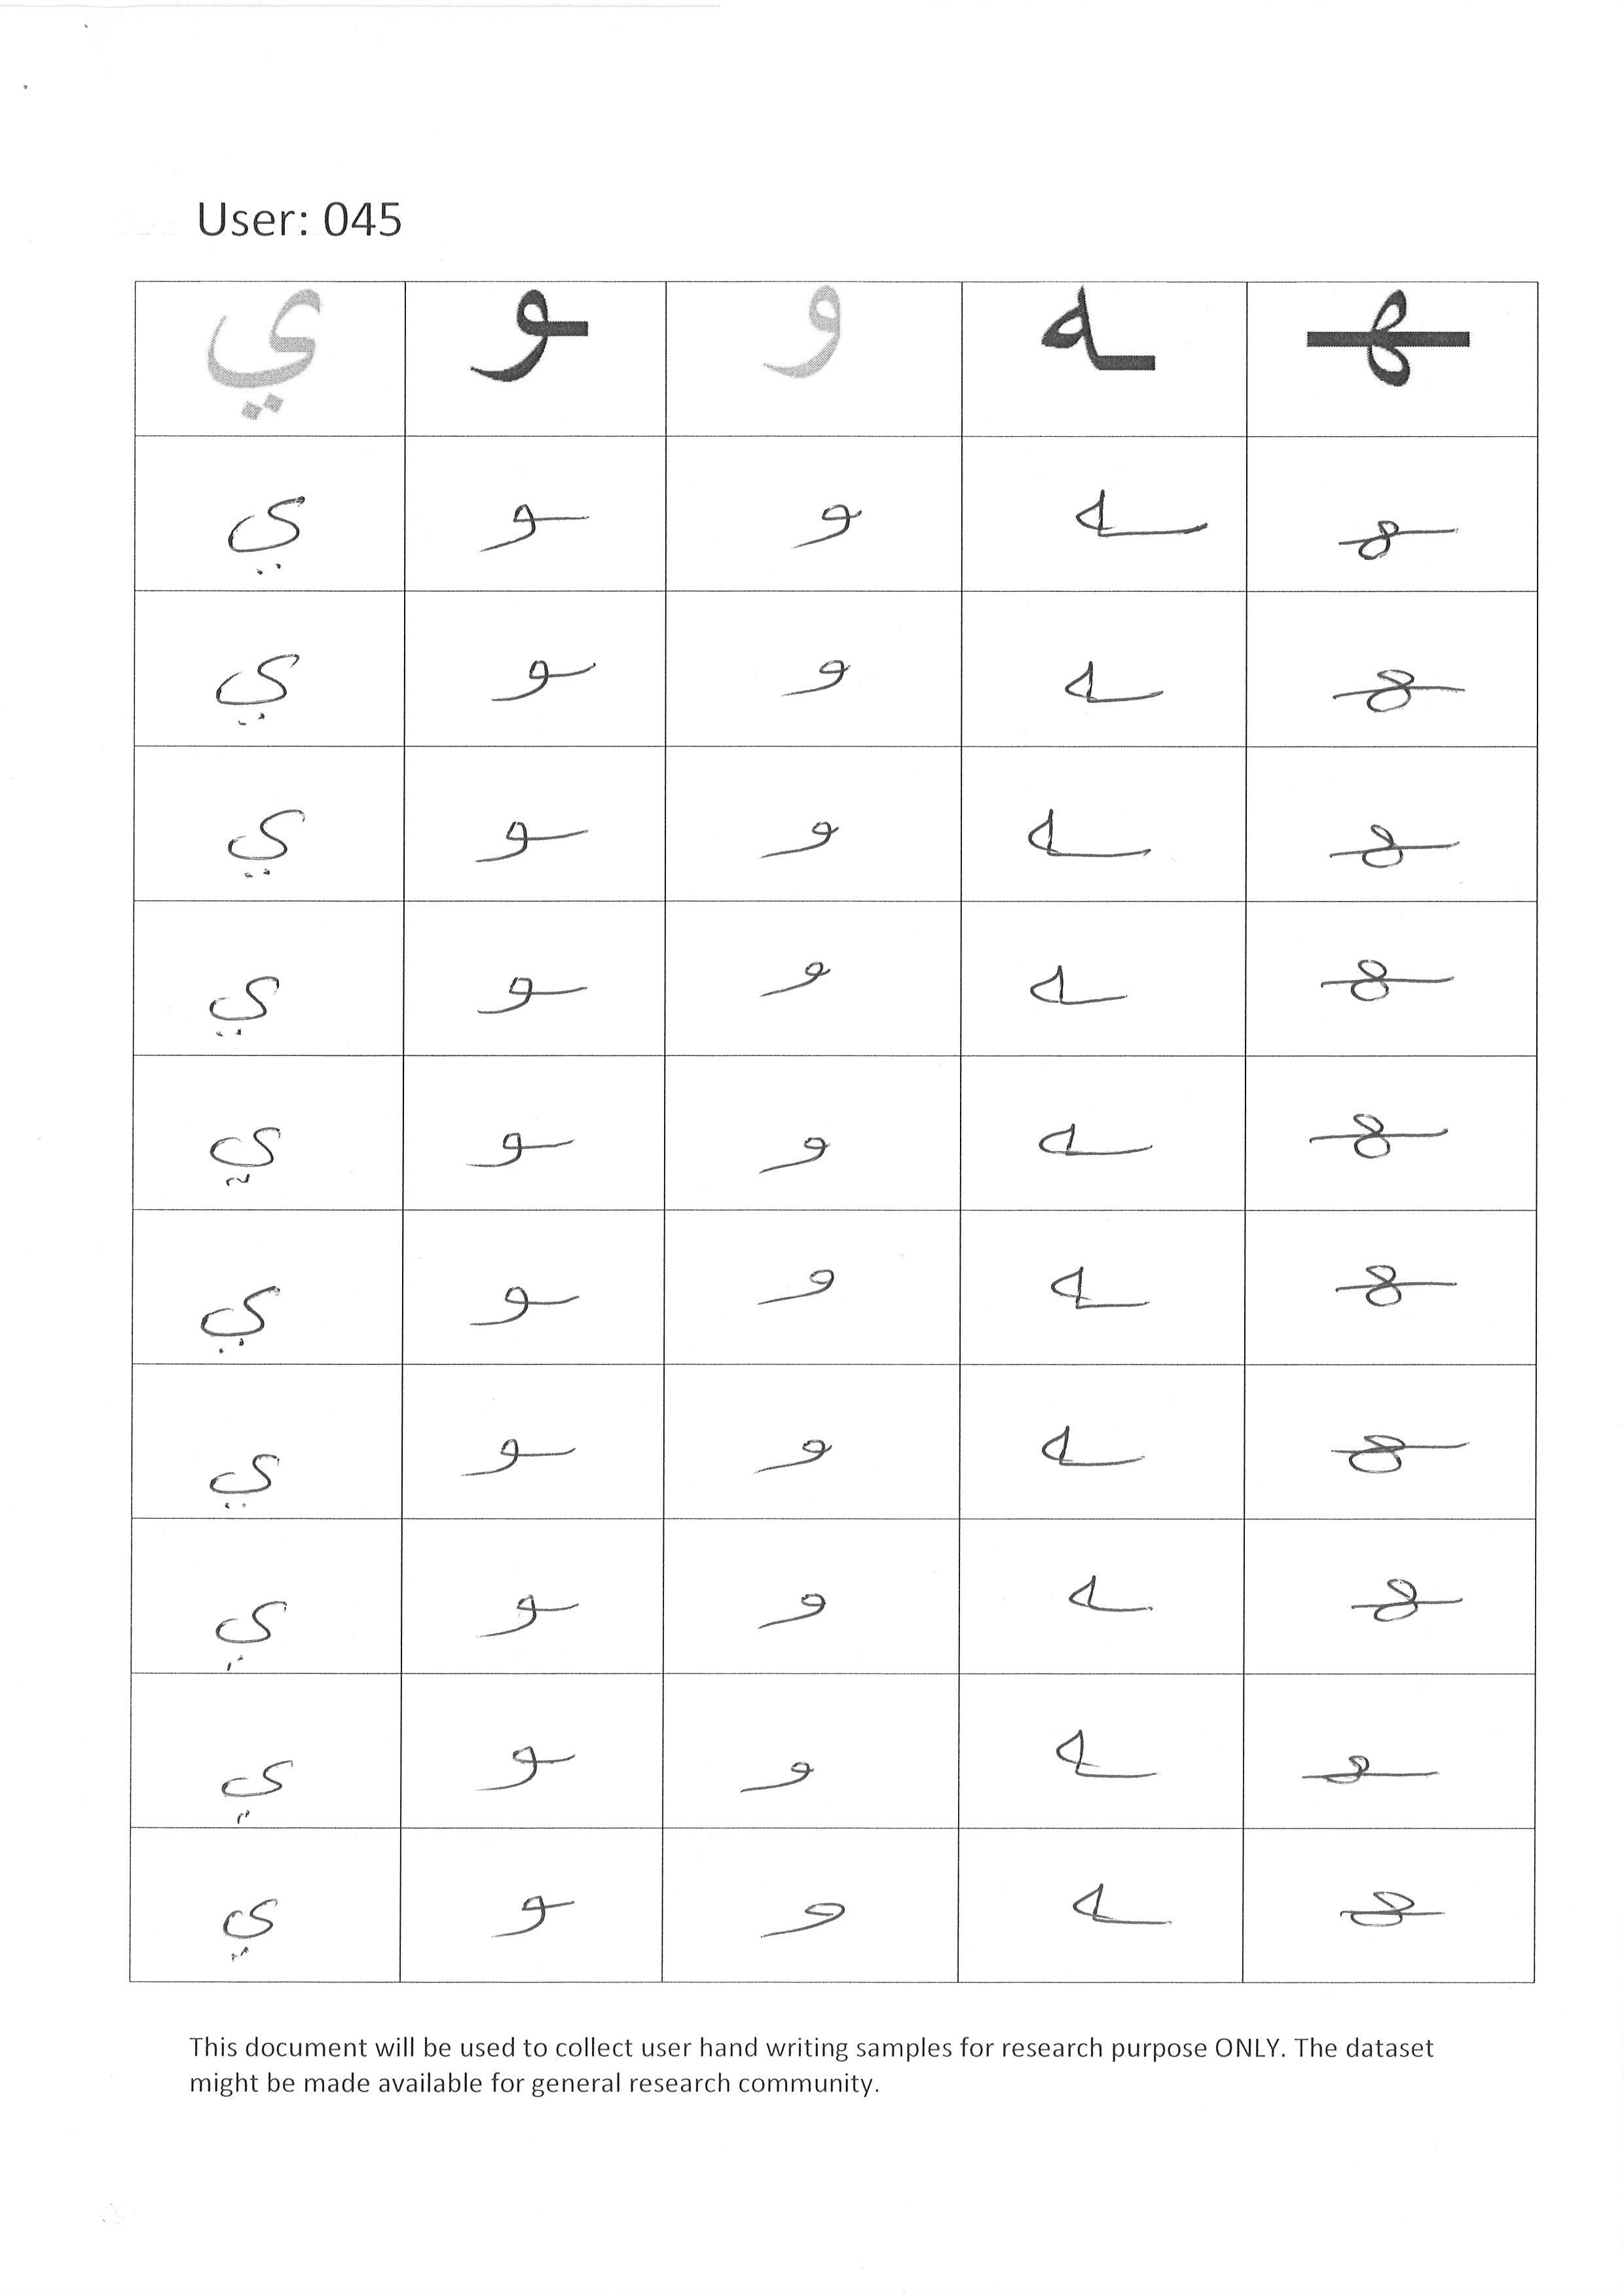 User: 045
ـهـ ـه و ـو ي
ـهـ ـه و ـو ي
ـهـ ـه و ـو ي
ـهـ ـه و ـو ي
ـهـ ـه و ـو ي
ـهـ ـه و ـو ي
ـهـ ـه و ـو ي
ـهـ ـه و ـو ي
ـهـ ـه و ـو ي
ـهـ ـه و ـو ي
ـهـ ـه و ـو ي
This document will be used to collect user hand writing samples for research purpose ONLY. The dataset
might be made available for general research community.